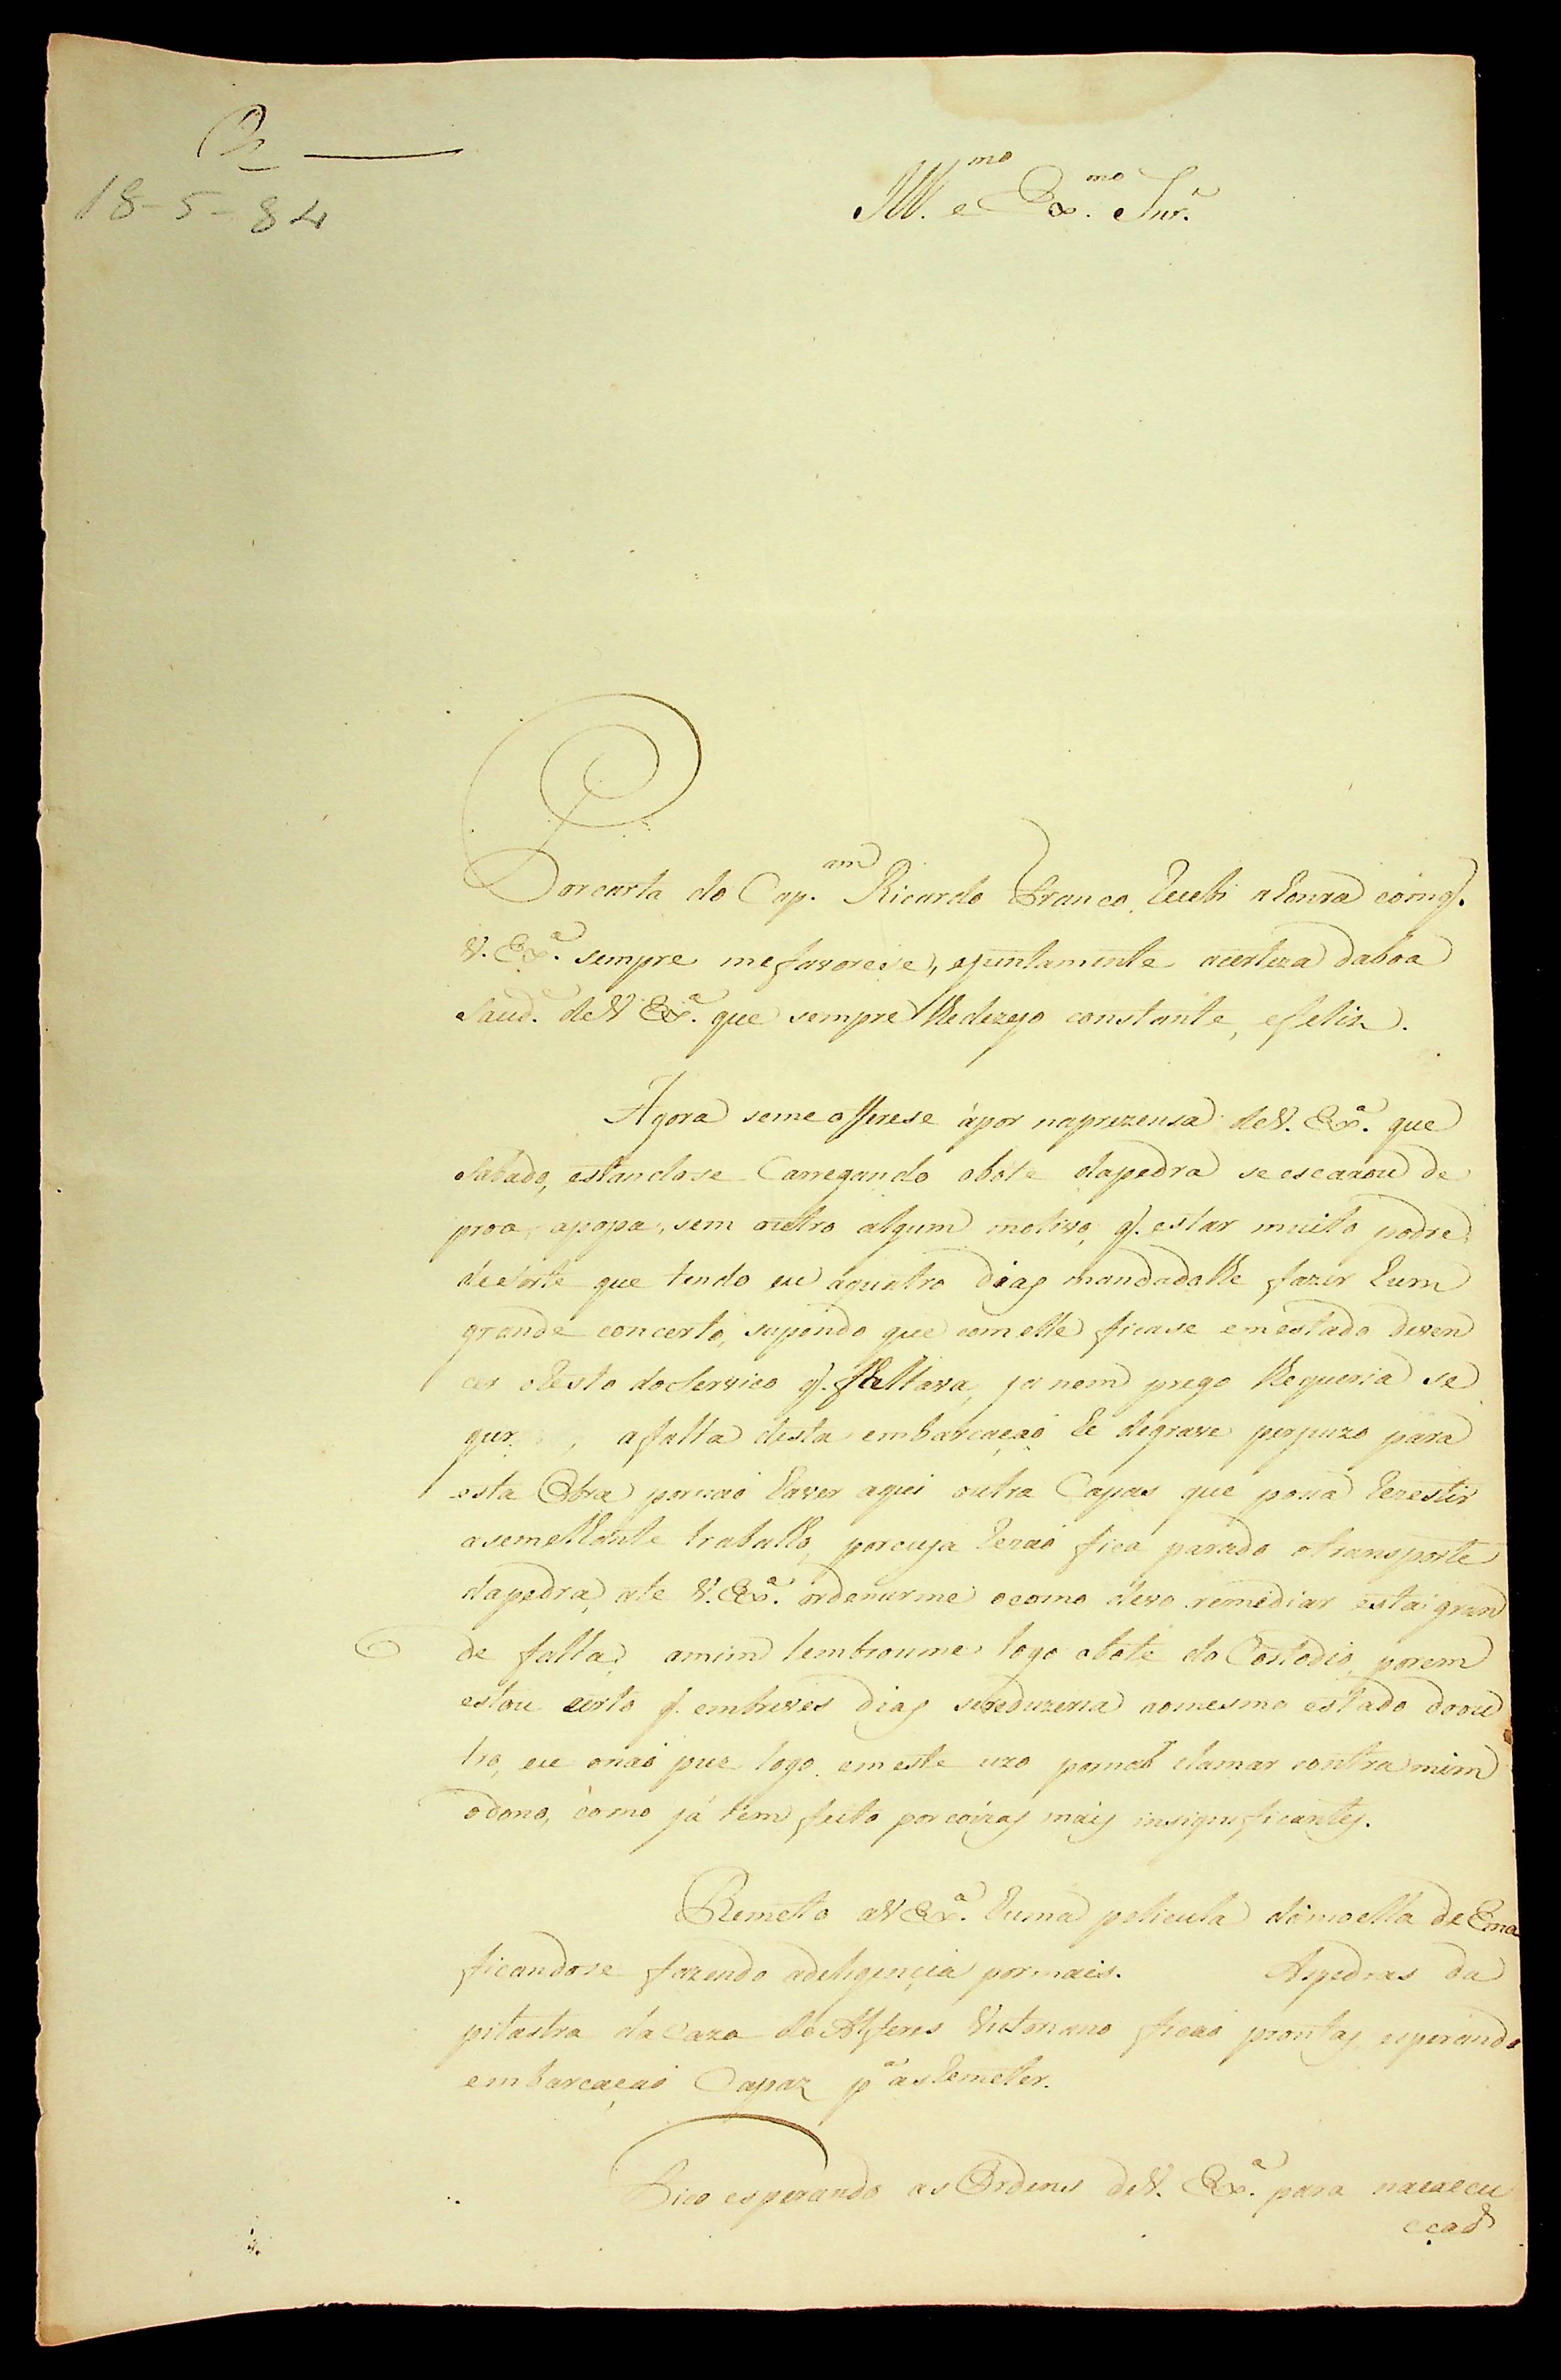 18-5-84
Ill.mo e Ex.mo Snr.
Por carta do Cap.am Ricardo Franco, recebi a honra com q.
V. Ex.a sempre me favorese, e juntamente a certeza da boa
Saud.e de V Ex.a que sempre lhe dezejo constante, e feliz.
Agora se me offerese á por na prezensa de V. Ex.a que
Sabado, estandose Carregando o bóte da pedra se escaxou de
proa, a popa, sem outro algum motivo, q. estar muito podre,
de sorte que tendo eu a quatro dias mandadolhe fazer hum
grande concerto, supondo que com elle ficase em estado de ven
cer o resto do Servico q. faltava, ja nem prego lhe queria se
gur , a falta desta embarcaçaõ he de grave perjuizo para
esta Obra por naõ haver aqui outra Capas que possa rezestir
a semelhante trabalho, por cuja rezaõ fica parado o transporte
da pedra, ate V. Ex.a ordenarme o como devo remediar esta gran
de falta; a mim lembroume logo o bote do Costodio, porem
estou certo q. em breves dias se reduzeria ao mesmo estado do ou
tro, eu o naõ puz logo em este uzo por naõ clamar contra mim
o dono, como já tem feito por coizas mais insignificantes.
Remeto a V Ex.a huma pelicula da moella de Ema
ficandose fazendo a deligençia por mais. As pedras da
pilastra da Caza do Alferes Victoriano ficaõ prontas, esperando
embarcaçaõ Capaz p.a as remeter.
Fico esperando as Ordens de V. Ex.a para na execu
cçaõ